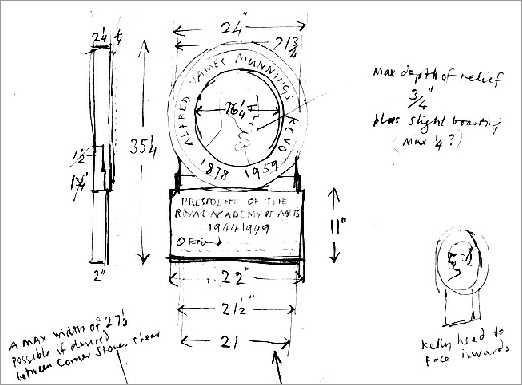 24"
2¼
¼
21¾
ALFRED JAMES MUNNINGS KCVO
1878 1959
16¼"
35¼
1½"
1¼"
2"
Max depth of relief
¾"
plus slight
(max ¼?)
PRESIDENT OF THE
ROYAL ACADEMY OF ARTS
1944 1949
11"
22"
21½"
21
A max width of 27½
possible if desired
between corner stones
Kelly, head to
face inwards